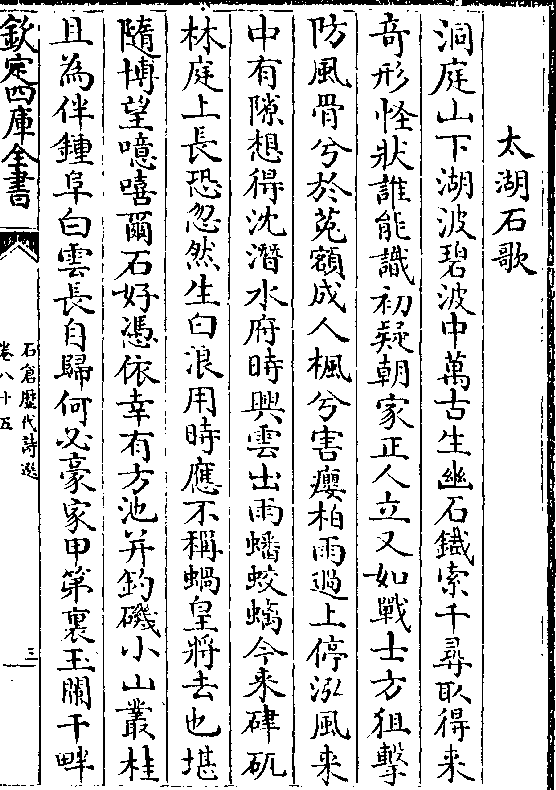 太湖石歌
洞庭山下湖波碧波中萬古生幽石鐡索千尋取得来
竒形怪狀誰能識初疑朝家正人立又如戰士方狙擊
防風骨兮於菟額成人楓兮害癭柏雨過上停泓風来
中有隙想得沈潛水府時興雲出雨蟠蛟螭今来硉矹
林庭上長恐忽然生白浪用時應不稱蝸皇將去也堪
隨博望噫嘻爾石好憑依幸有方池并釣磯小山叢桂
且為伴鍾阜白雲長自歸何必豪家甲第裏玉闌干畔
欽定四庫全書
石倉歷代詩選
卷八十五
三